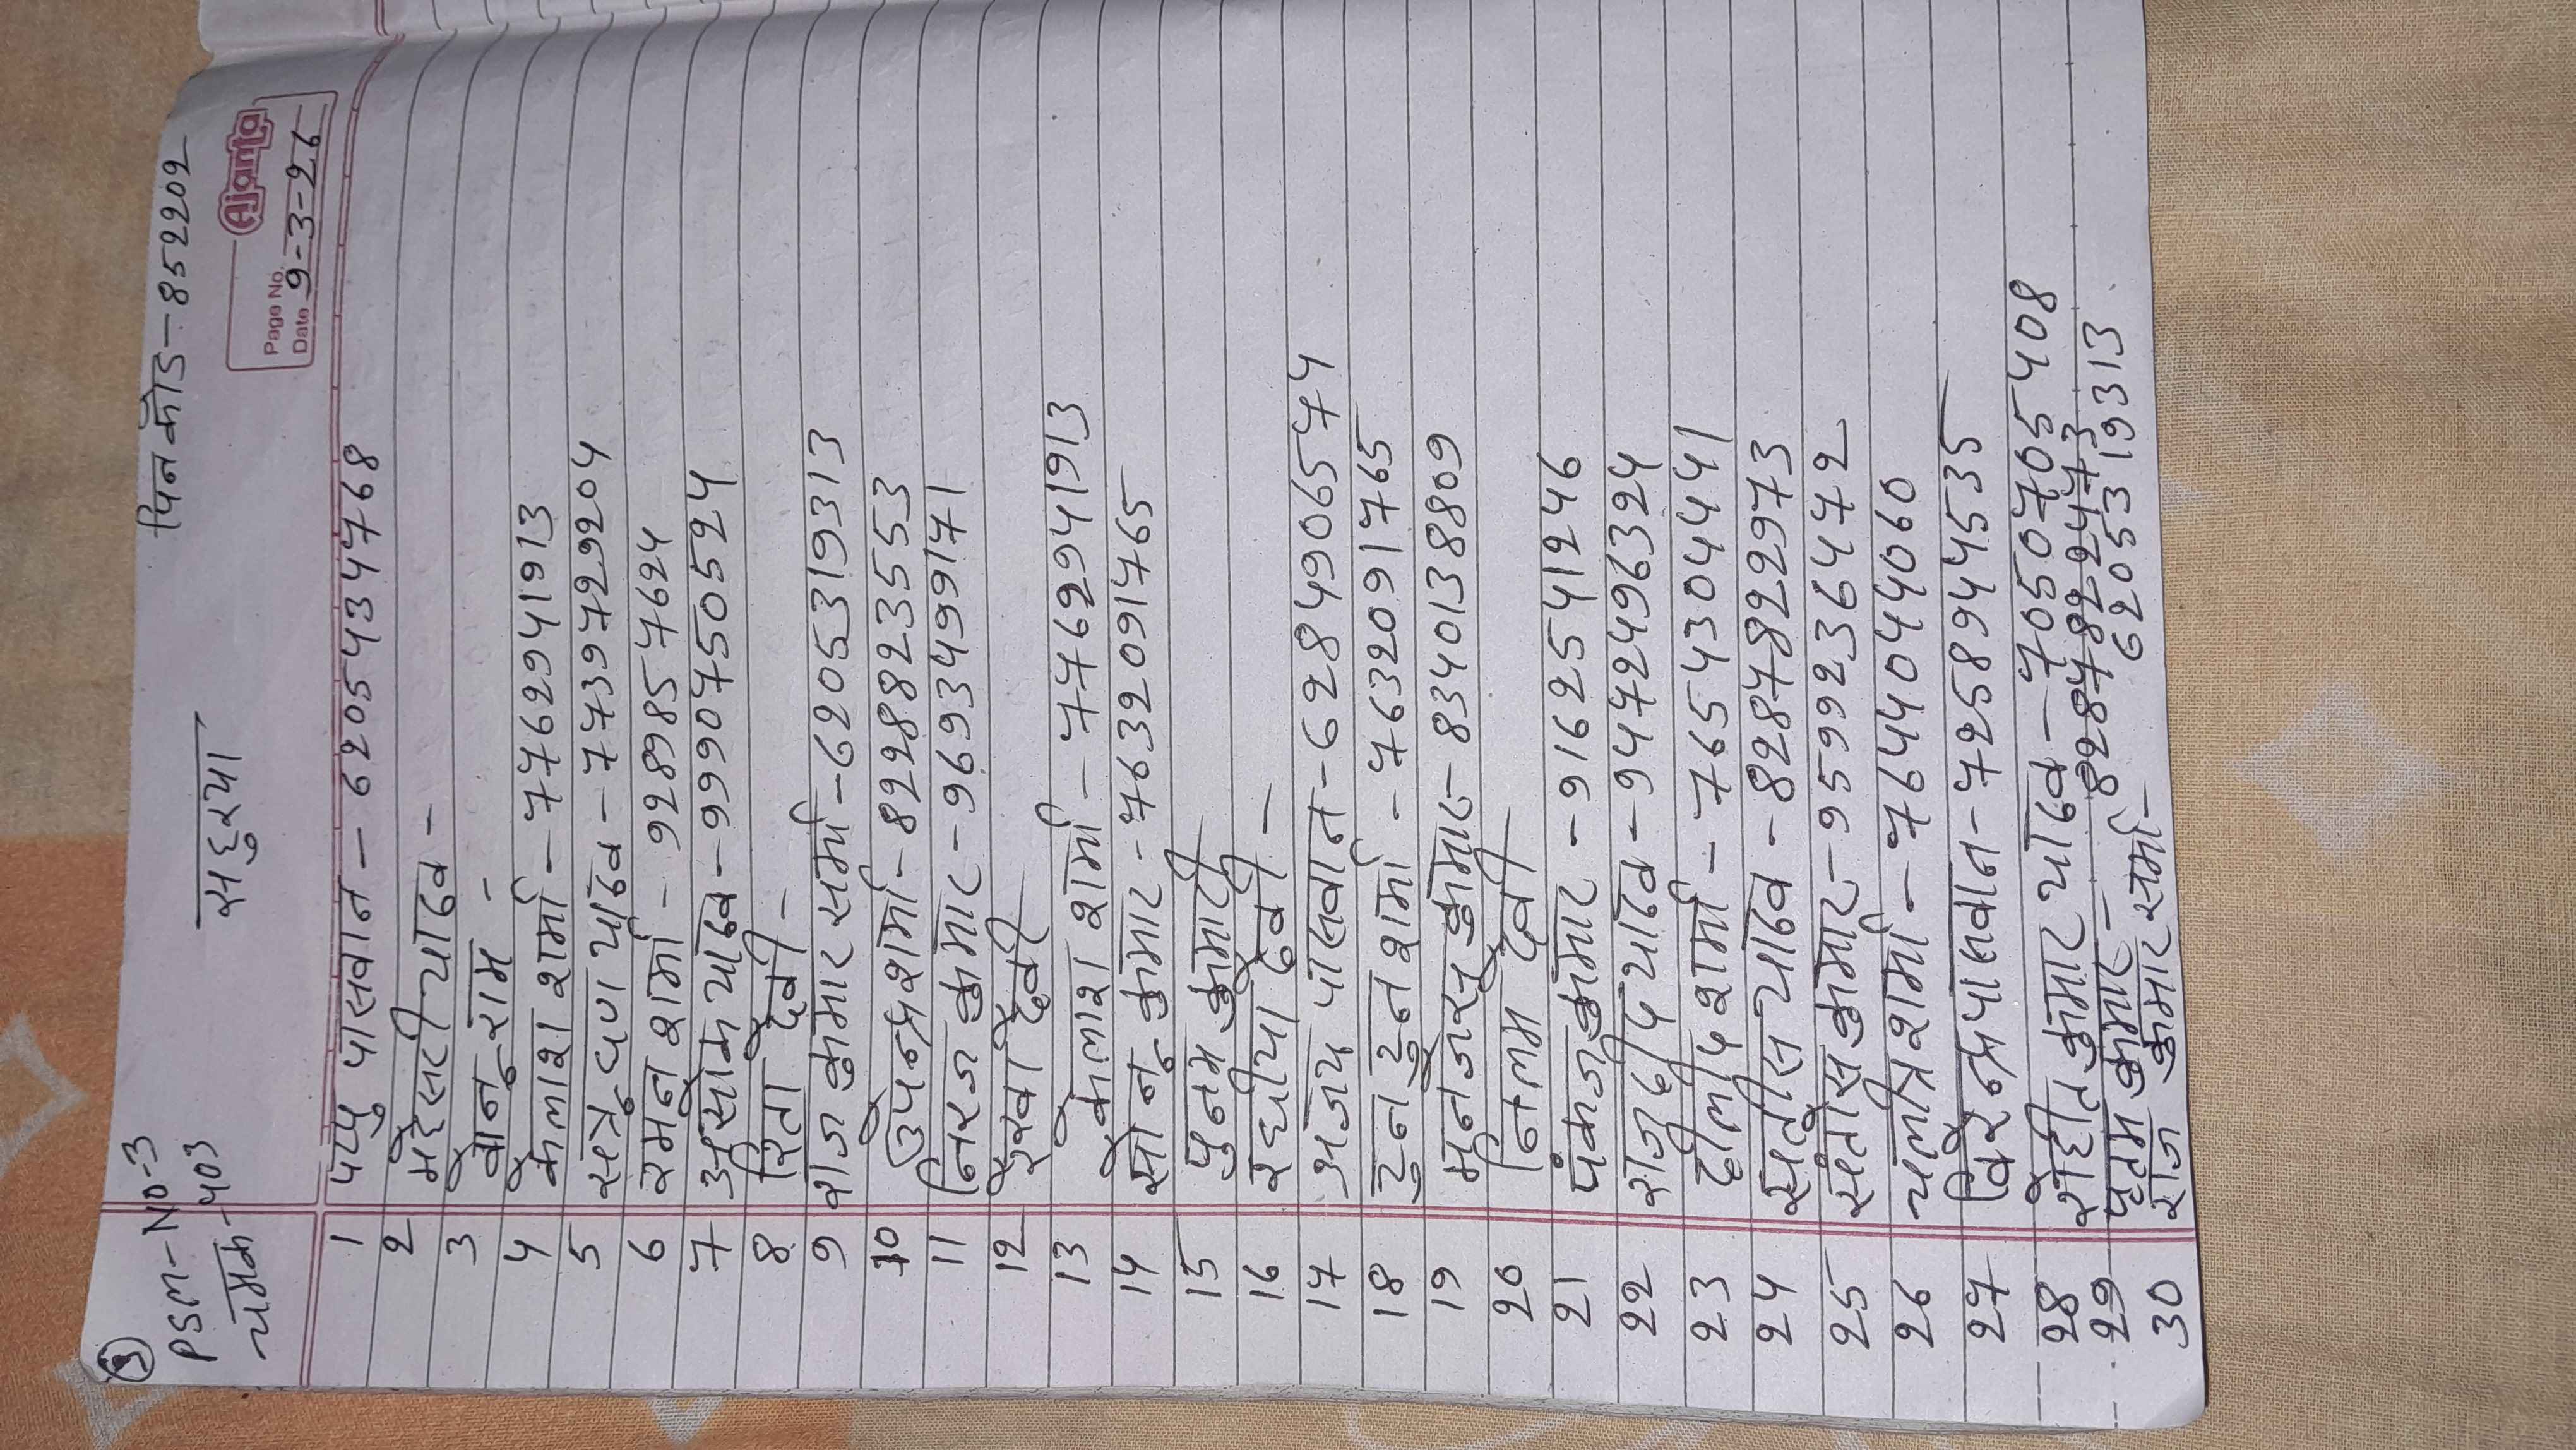 3
PSM-NO-3
चमक-403
पिनकोड-852202
सदुस्या
Ajanta
Page No.
Date 9-3-26
1 पप्पु पासवान - 6205434768
2 मेहसटी यादव -
3 वोनू राम -
4 केलाश शर्मा - 7762941913
5 सत्रुधण यादव - 7739729204
6 रमन शर्मा - 9289857624
7 असोक यादव - 9990750524
8 रिता देवी -
9 राज कुमार समा - 6205319313
10 उपेन्द्र शर्मा - 8228823553
11 निरज कुमार - 9693499171
12 रेखा देवी
13 केलाश शर्मा - 7762941913
14 सोनू कुमार - 7632091765
15 पुनम कुमारी
16 रधीया देवी -
17 अजय पासवान - 6284906574
18 टुन टुन शर्मा - 7632091765
19 मुनजसू कुमार - 8340138809
20 निलम देवी
21 पंकज कुमार - 9162541246
22 राजदीप यादव - 9472496324
23 दीलीप शर्मा - 7654304441
24 सतीस यादव - 8287822973
25 संतोस कुमार - 9599236472
26 चलीत्र शर्मा - 7644044060
27 विरेन्द्र पासवान - 7258944535
28 रोहीत कुमार यादव - 7050705408
29 पूतम कुमार - 8287822473
30 राज कुमार समा - 6205319313